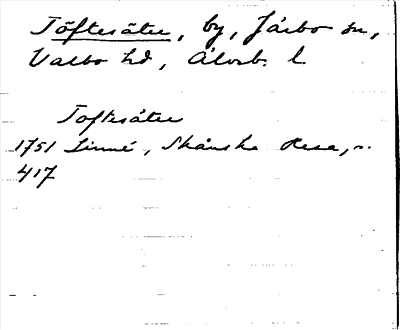 Töftesäter, by, Järbo sn,
Valbo hd, Älvsb. l.
Toftesäter
1751 Linné, Skånska Resa, s.
417